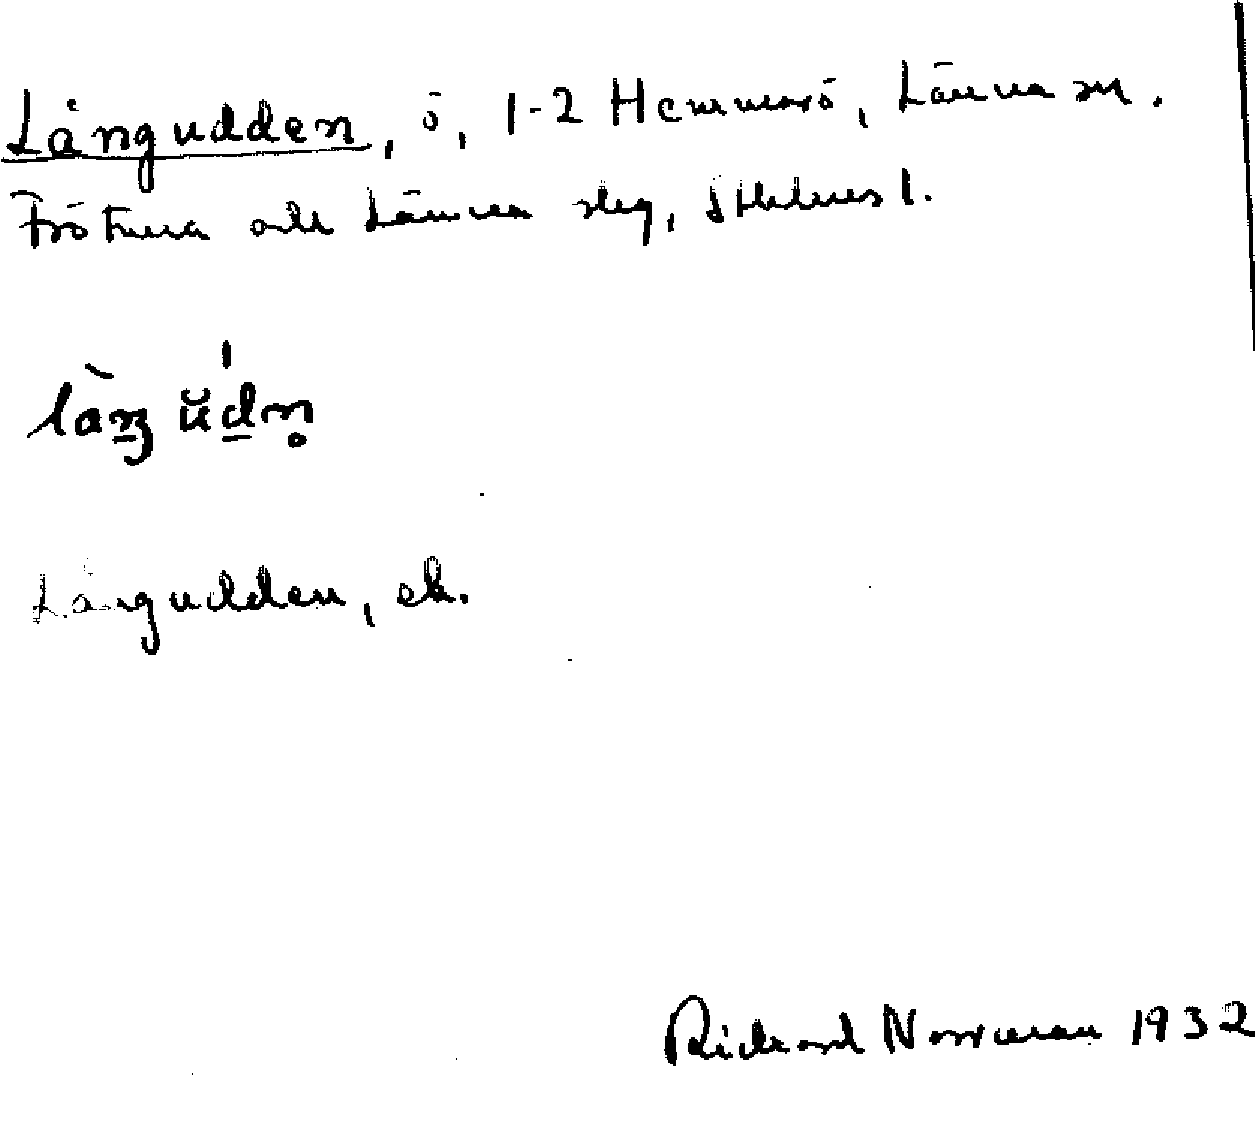 Långudden, ö, 1-2 Hemmarö, Länna sn.
Frötuna och Länna slg, Sthlms l.
làŋ ŭ́dn̥
Långudden, ek.
Richard Norrman 1932